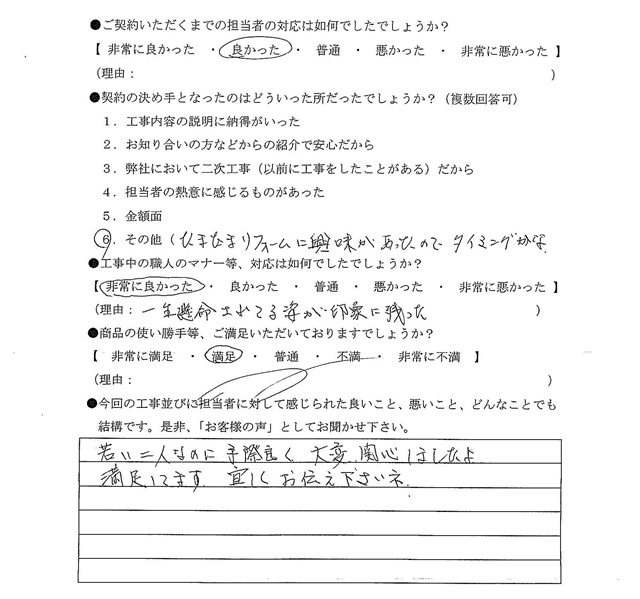 ●ご契約いただくまでの担当者の対応は如何でしたでしょうか？
【 非常に良かった ・ 良かった ・ 普通 ・ 悪かった ・ 非常に悪かった 】
（理由： ）
●契約の決め手となったのはどういった所だったでしょうか？（複数回答可）
１．工事内容の説明に納得がいった
２．お知り合いの方などからの紹介で安心だから
３．弊社において二次工事（以前に工事をしたことがある）だから
４．担当者の熱意に感じるものがあった
５．金額面
６．その他（たまたまリフォームに興味があったので タイミングかな
●工事中の職人のマナー等、対応は如何でしたでしょうか？
【 非常に良かった ・ 良かった ・ 普通 ・ 悪かった ・ 非常に悪かった 】
（理由： 一生懸命されてる姿が印象に残った ）
●商品の使い勝手等、ご満足いただいておりますでしょうか？
【 非常に満足 ・ 満足 ・ 普通 ・ 不満 ・ 非常に不満 】
（理由： ）
●今回の工事並びに担当者に対して感じられた良いこと、悪いこと、どんなことでも
結構です。是非、「お客様の声」としてお聞かせ下さい。
若い二人なのに 手際良く 大変 関心しましたよ
満足してます 宜しくお伝え下さいネ